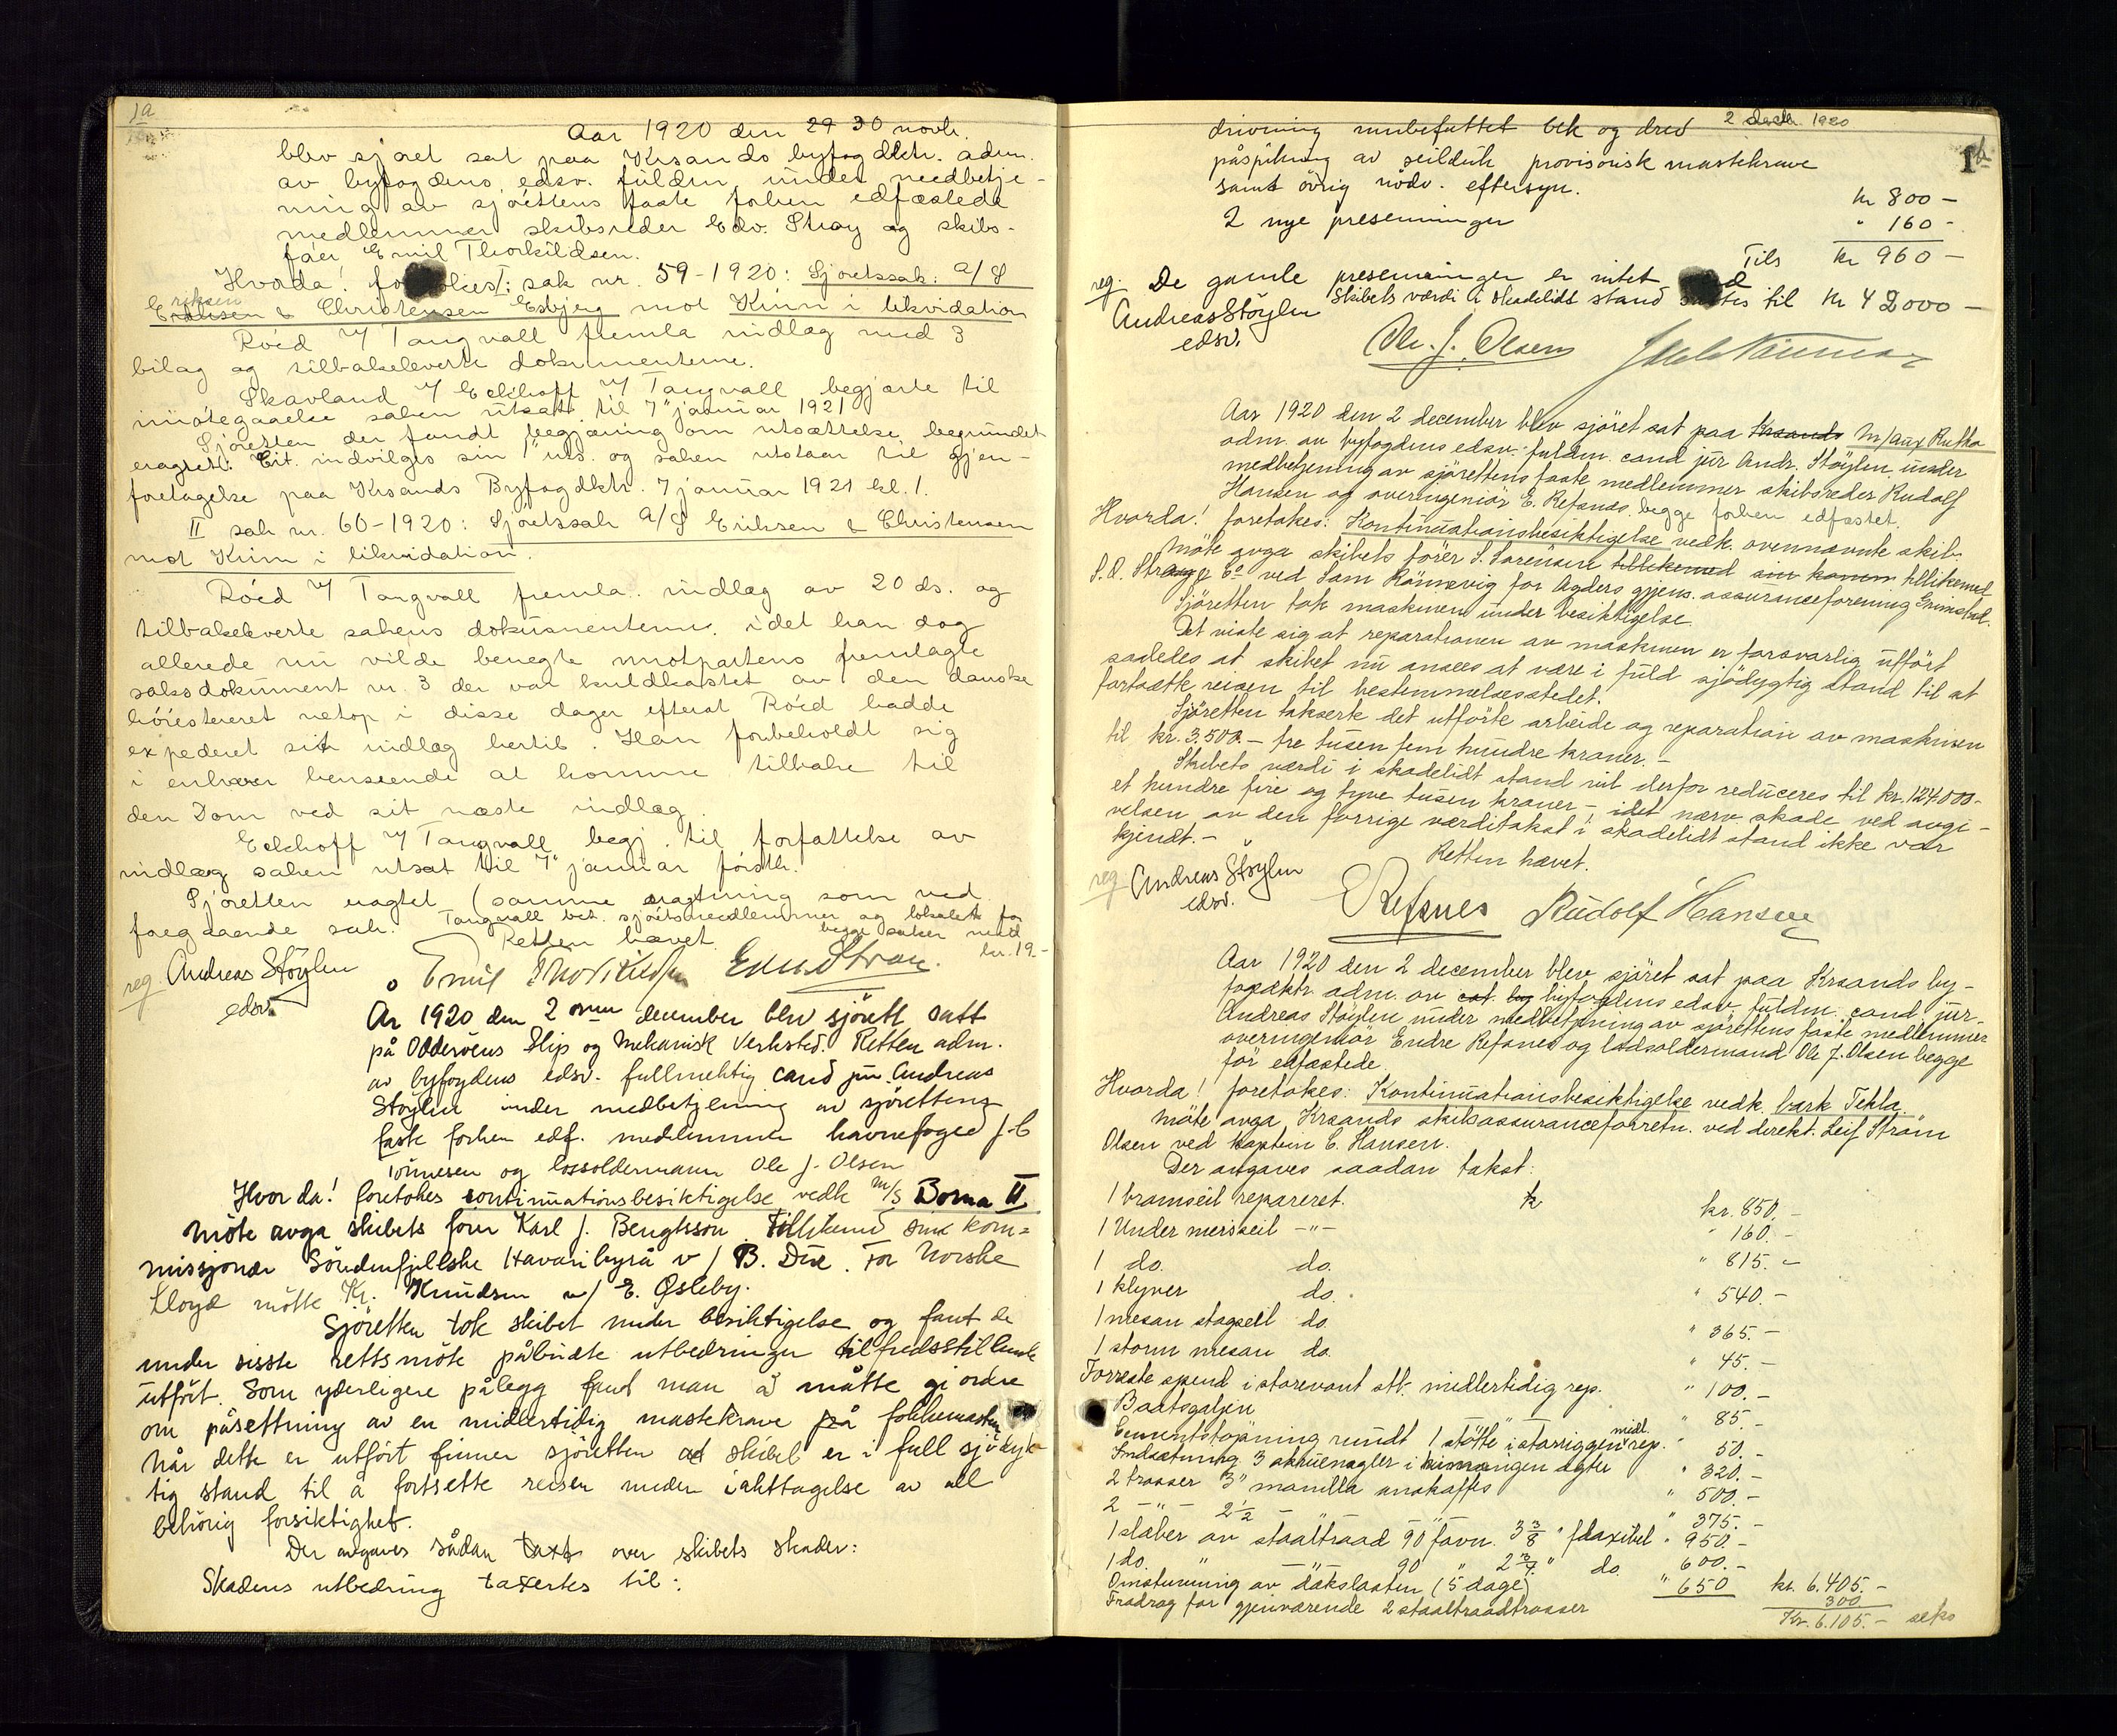 1a
Aar 1920 den 29 30 novbr.
blev sjøret sat paa Krsands byfogdktr. adm.
av byfogdens edsv. fuldm. under medbetje-
ning av sjørettens faste forhen edfæstede
medlemmer skibsreder Edv. Stray og skibs-
fører Emil Thorkildsen.
Hvorda! I: sak nr. 59-1920: Sjøretssak: A/S
Eriksen & Christensen Esbjerg mot Kinn i likvidation
Röed v/ Tangvall fremla indlag med 3
bilag og tilbakeleverte dokumenterne.
Skavland v/ Eckhoff v/ Tangvall begjærte til
imøtegaaelse saken utsat til 7' januar 1921
Sjøretten der fandt begjæring om utsættelse begrundet
eragtet: Eit. indvilges sin 1" uts. og saken utstaar til gjen-
foretagelse paa Krsands Byfogdktr. 7 januar 1921 kl. 1.
II sak nr. 60-1920: Sjøretssak A/S Eriksen & Christensen
mot Kinn i likvidation.
Röed v/ Tangvall fremla indlæg av 20 ds. og
tilbakeleverte sakens dokumenterne, idet han dog
allerede nu vilde benegte motpartens fremlagte
saksdokument nr. 3 der var kuldkastet av den danske
höiesteret netop i disse dager efterat Röed hadde
expederet sit indlag hertil. Han forbeholdt sig
i enhver henseende at komme tilbake til
den Dom ved sit næste indlag.
Eckhoff v/ Tangvall begj. til forfattelse av
indlæg saken utsat til 7' januar förstk.
Sjøretten eragtet (samme eragtning som ved
foregaaende sak. Tangvall bet. sjøretsmedlemmer og lokalet for
Retten hævet. begge saker med
kr. 19.-
reg. Andreas Stöylen Emil Thorkildsen Edv. Stray.
edsv.
År 1920 den 2 nen december blev sjörett satt
på Odderöens Slip og Mekanisk Verksted. Retten adm.
av byfogdens edsv. fullmektig cand jur. Andreas
Stöylen under medbetjening av sjörettens
faste forhen edf. medlemmer havnefoged J. C
Tönnesen og lossoldermann Ole J. Olsen
Hvor da! foretokes kontinuationsbesiktigelse vedk M/S Borna II
Möte avga skibets förer Karl J. Bengtsson tillikemed sin kom=
missjonær Söndenfjellske Havaribyrå v/ B. Due. For Norske
Lloyd mötte Kr. Knudsen v/ E. Øsleby.
Sjöretten tok skibet under besiktigelse og fant de
under sisste rettsmöte påbudte utbedringer tilfredsstillende
utfört. Som yderligere pålegg fant man å måtte gi ordre
om påsettning av en midlertidig mastekrave på fokkemasten
Når dette er utfört finner sjöretten at skibet er i full sjödyk-
tig stand til å fortsette reisen under iakttagelse av all
behörig forsiktighet.
Der avgaves sådan taxt over skibets skader:
Skadens utbedring taxertes til:
2 decbr 1920
1b
drivning umbefattet bek og drev
påspikring av seilduk provisorisk mastekrave
samt övrig nödv. eftersyn. kr 800 -
2 nye presenninger " 160 -
Tils kr 960 -
reg. De gamle presenninger er intet
Skibets værdi i skadelidt stand sættes til kr 42000 -
Andreas Stöylen
edsv.
Ole. J. Olsen
Aar 1920 den 2 december blev sjöret sat paa Krsands M/Aux Rutha
adm. av byfogdens edsv. fuldm. cand jur Andr. Stöylen under
medbetjening av sjörettens faste medlemmer skibsreder Rudolf
Hansen og overingeniör E. Refsnes begge forhen edfæstet.
Hvorda! foretokes: Kontinuationsbesiktigelse vedk. ovennævnte skib.
Möte avga skibets förer S. Sörensen tillikemed sin komm tillikemed
S. O. Stray & Co ved Sam Rönnevig for Agders gjens. assuranceforening Grimstad.
Sjöretten tok maskinen under besiktigelse.
Det viste sig at reparationen av maskinen er forsvarlig utfört
saaledes at skibet nu ansees at være i fuld sjödygtig stand til at
fortsætte reisen til bestemmelsesstedet.
Sjöretten takserte det utförte arbeide og reparation av maskinen
til kr. 3.500.- tre tusen fem hundre kroner.-
Skibets værdi i skadelidt stand vil derfor reduceres til kr. 124.000.-
et hundre fire og tyve tusen kroner - idet nærv. skade ved avgi-
velsen av den forrige værditakst i skadelidt stand ikke var
kjendt.-
Retten hævet.
reg. Andreas Stöylen
edsv.
E Refsnes Rudolf Hansen
Aar 1920 den 2 december blev sjöret sat paa Krsands by-
fogdktr. adm. av byfogdens edsv. fuldm. cand. jur.
Andreas Stöylen under medbetjening av sjörettens faste medlemmer
overingeniör Endre Refsnes og lodsoldermand Ole J. Olsen begge
för edfæstede.
Hvorda! foretokes: Kontinuationsbesiktigelse vedk. bark Tekla.
Möte avga Krsands skibsassuranceforretn. ved direkt. Leif Ström
Olsen ved kaptein C. Hansen.
Der avgaves saadan takst:
1 bramseil repareret. kr. 850.-
1 Under mersseil -"- " 160.-
1 do. do. " 815.-
1 klyver do. " 540.-
1 mesan stagseil do. " 365.-
1 storm mesan do. " 45.-
Forreste spend i storevant stb. midlertidig rep. " 100.-
Baatsgaljen " 85.-
Cementstöpning rundt 1 stötte i storriggen midl. rep. " 50.-
Indsætning 3 skruenagler i agter " 320.-
2 trosser 3" manilla anskaffes " 500.-
2 -"- 2 1/2 - " - " 375.-
1 slæber av staaltraad 90 favn. 3 3/8 " flaxibel " 950.-
1 do. " -"- 90 " 2 3/4 " do. " 600.-
Omstuvning av dækslasten (5 dage) " 650 kr. 6.405.-
Fradrag for gjenværende 2 staaltraadtrosser 300
Kr. 6.105.- seks